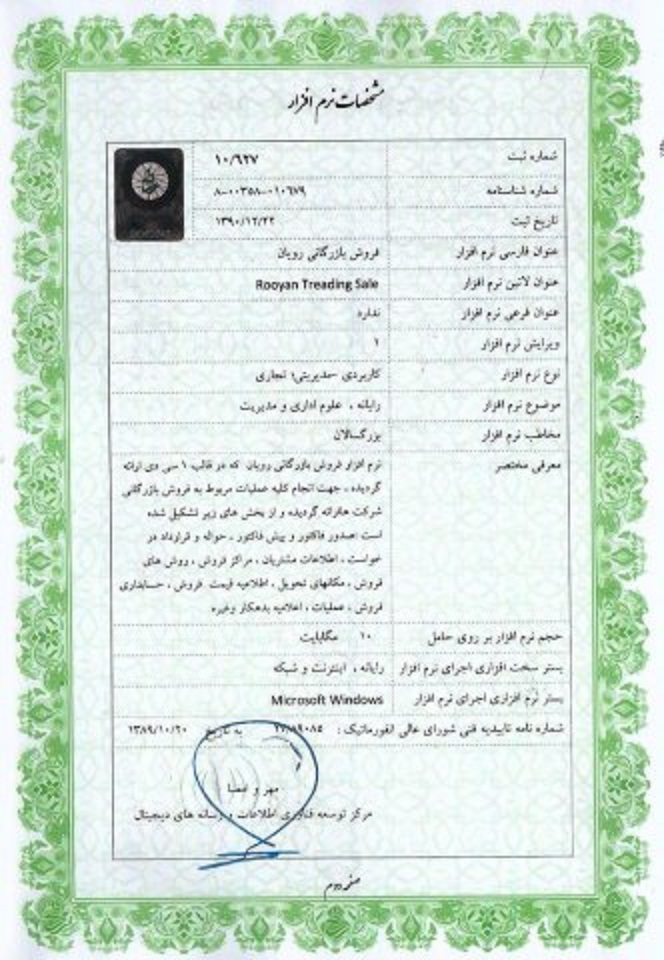 مشخصات نرم افزار
شماره ثبت ۱۰/۶۲۷
شماره شناسنامه ۸-۰۰۳۵۸-۰۱۰۶۷۹
تاریخ ثبت ۱۳۹۰/۱۲/۲۲
عنوان فارسی نرم افزار فروش بازرگانی رویان
عنوان لاتین نرم افزار Rooyan Treading Sale
عنوان فرعی نرم افزار ندارد
ویرایش نرم افزار ۱
نوع نرم افزار کاربردی -مدیریتی؛ تجاری
موضوع نرم افزار رایانه ، علوم اداری و مدیریت
مخاطب نرم افزار بزرگسالان
معرفی مختصر نرم افزار فروش بازرگانی رویان که در قالب ۱ سی دی ارائه
گردیده ، جهت انجام کلیه عملیات مربوط به فروش بازرگانی
شرکت ها ارائه گردیده و از بخش های زیر تشکیل شده
است :صدور فاکتور و پیش فاکتور ، حواله و قرارداد در
خواست ، اطلاعات مشتریان ، مراکز فروش ، روش های
فروش ، مکانهای تحویل ، اطلاعیه قیمت فروش ، حسابداری
فروش ، عملیات ، اعلامیه بدهکار وغیره
حجم نرم افزار بر روی حامل ۱۰ مگابایت
بستر سخت افزاری اجرای نرم افزار رایانه ، اینترنت و شبکه
بستر نرم افزاری اجرای نرم افزار Microsoft Windows
شماره نامه تاییدیه فنی شورای عالی انفورماتیک : به تاریخ ۱۳۸۹/۱۰/۲۰
مهر و امضا
مرکز توسعه فناوری اطلاعات و رسانه های دیجیتال
صفحه دوم